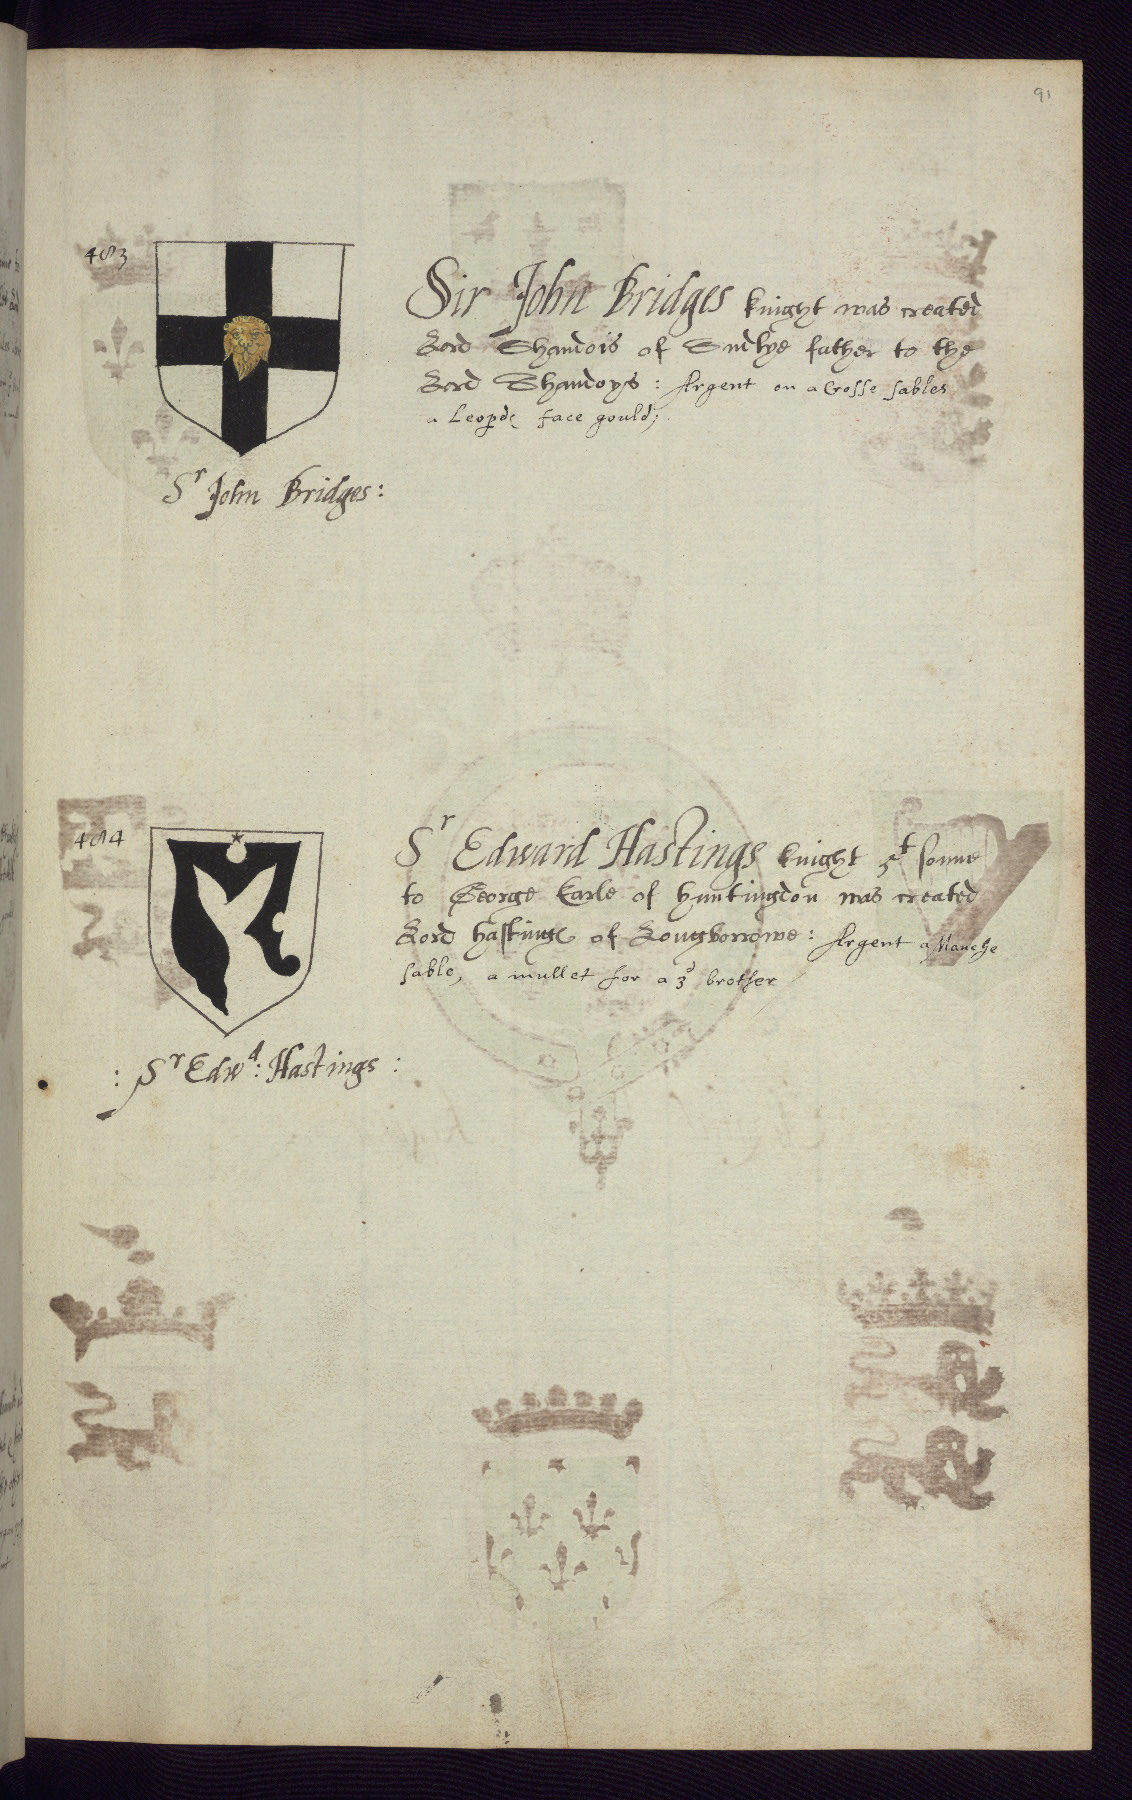 91
483
Sir John Bridges knight was created
Lord Shandois of Sudlye father to the
Lord Shandoys : Argent on a Crosse sables
a Leopde face gould;
Sr John Bridges :
484
Sr Edward Hastings knight 5t sonne
to George Earle of Huntingdon was created
Lord Hastinge of Lougborrowe : Argent a Manche
sable, a mullet for a 3d brother
: Sr Edwd : Hastings :